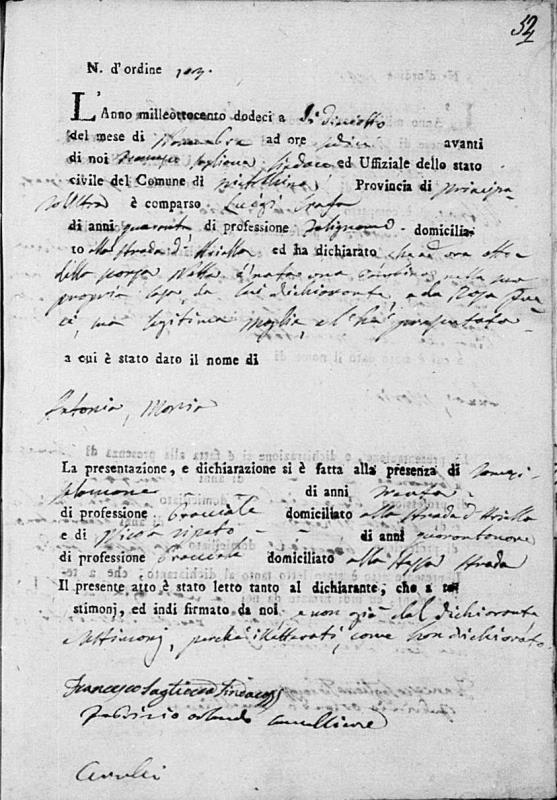 52
N. d'ordine 103.
L'Anno milleottocento dodeci a dì dieciotto
del mese di Novembre ad ore avanti
di noi Francesco Sindaco ed Uffiziale dello stato
civile del Comune di Provincia di Principa
to Ultra è comparso Luigi
di anni quaranta di professione falegname domicilia-
to alla strada d' Ariella ed ha dichiarato che ad ore otto
della scorsa notte è nata una bambina nella sua
propria casa, da lui dichiarante, e da Rosa
sua legitima moglie, e l' ha presentata
a cui è stato dato il nome di
Antonia, Maria
La presentazione, e dichiarazione si è fatta alla presenza di
Salomone di anni trenta
di professione Bracciale domiciliato alla strada d' Ariella
e di di anni quarantanove
di professione Bracciale domiciliato alla stessa strada
Il presente atto è stato letto tanto al dichiarante, che a te-
stimonj, ed indi firmato da noi, e non già dal dichiarante
e testimonj, perchè illitterati, come han dichiarato
Francesco Sindaco
Fabrizio Orlando Cancelliere